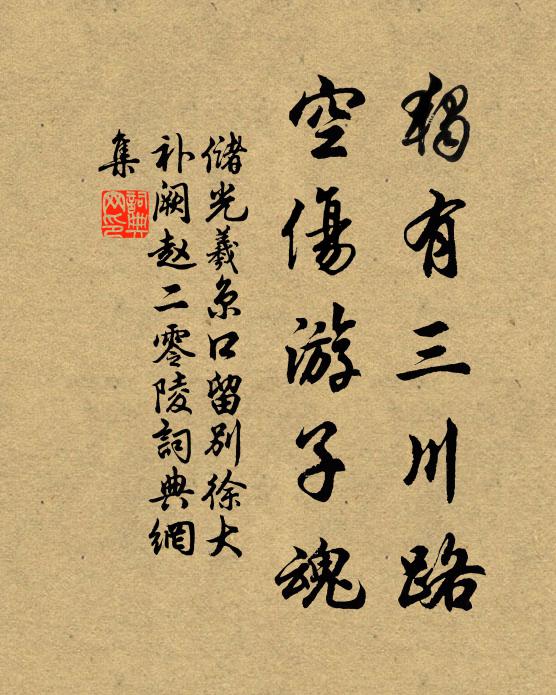 獨有三川路
空傷游子魂
儲光羲京口留別徐大
补阙赵二零陵詞典網
集
詞典
网印